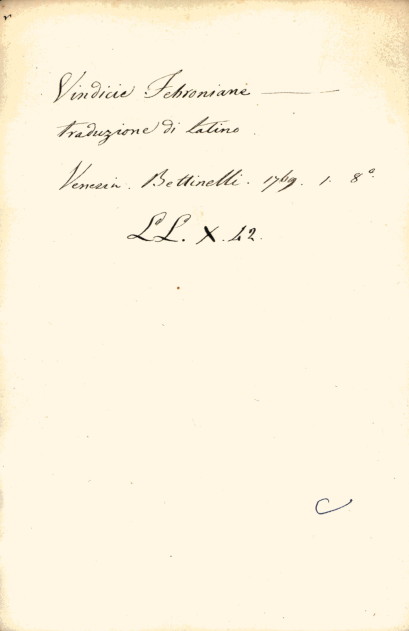 Vindicie Febroniane ———
traduzione di latino.
Venezia. Bettinelli. 1769. 1. 8°.
LL. X. 42.
C